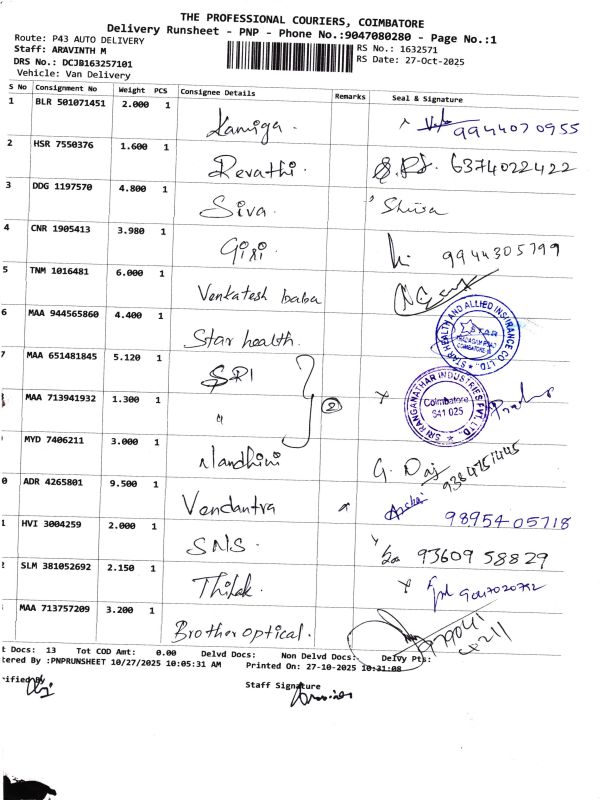 THE PROFESSIONAL COURIERS, COIMBATORE
Delivery Runsheet - PNP - Phone No.:9047080280 - Page No.:1
Route: P43 AUTO DELIVERY
Staff: ARAVINTH M
RS No.: 1632571
DRS No.: DCJB163257101
RS Date: 27-Oct-2025
Vehicle: Van Delivery
S No Consignment No Weight PCS Consignee Details Remarks Seal & Signature
1 BLR 501071451 2.000 1 Kaniga. 9944070955
2 HSR 7550376 1.600 1 Revathi. 6374022422
3 DDG 1197570 4.800 1 Siva. Shiva
4 CNR 1905413 3.980 1 Giri. 9944305799
5 TNM 1016481 6.000 1 Venkatesh baba
6 MAA 944565860 4.400 1 Star health. STAR HEALTH AND ALLIED INSURANCE CO. LTD. STAR
7 MAA 651481845 5.120 1 SRI
MAA 713941932 1.300 1 " 2 SRI RANGANATHAR INDUSTRIES PVT. LTD. Coimbatore 641 025
MYD 7406211 3.000 1 Nandhini 9384751445
0 ADR 4265801 9.500 1 Vendantra 9895405718
1 HVI 3004259 2.000 1 SNS. 93609 58829
2 SLM 381052692 2.150 1 Thilak.
MAA 713757209 3.200 1 Brother optical.
t Docs: 13 Tot COD Amt: 0.00 Delvd Docs: Non Delvd Docs: Delvy Pts:
tered By :PNPRUNSHEET 10/27/2025 10:05:31 AM Printed On: 27-10-2025 10:31:08
rified By
Staff Signature